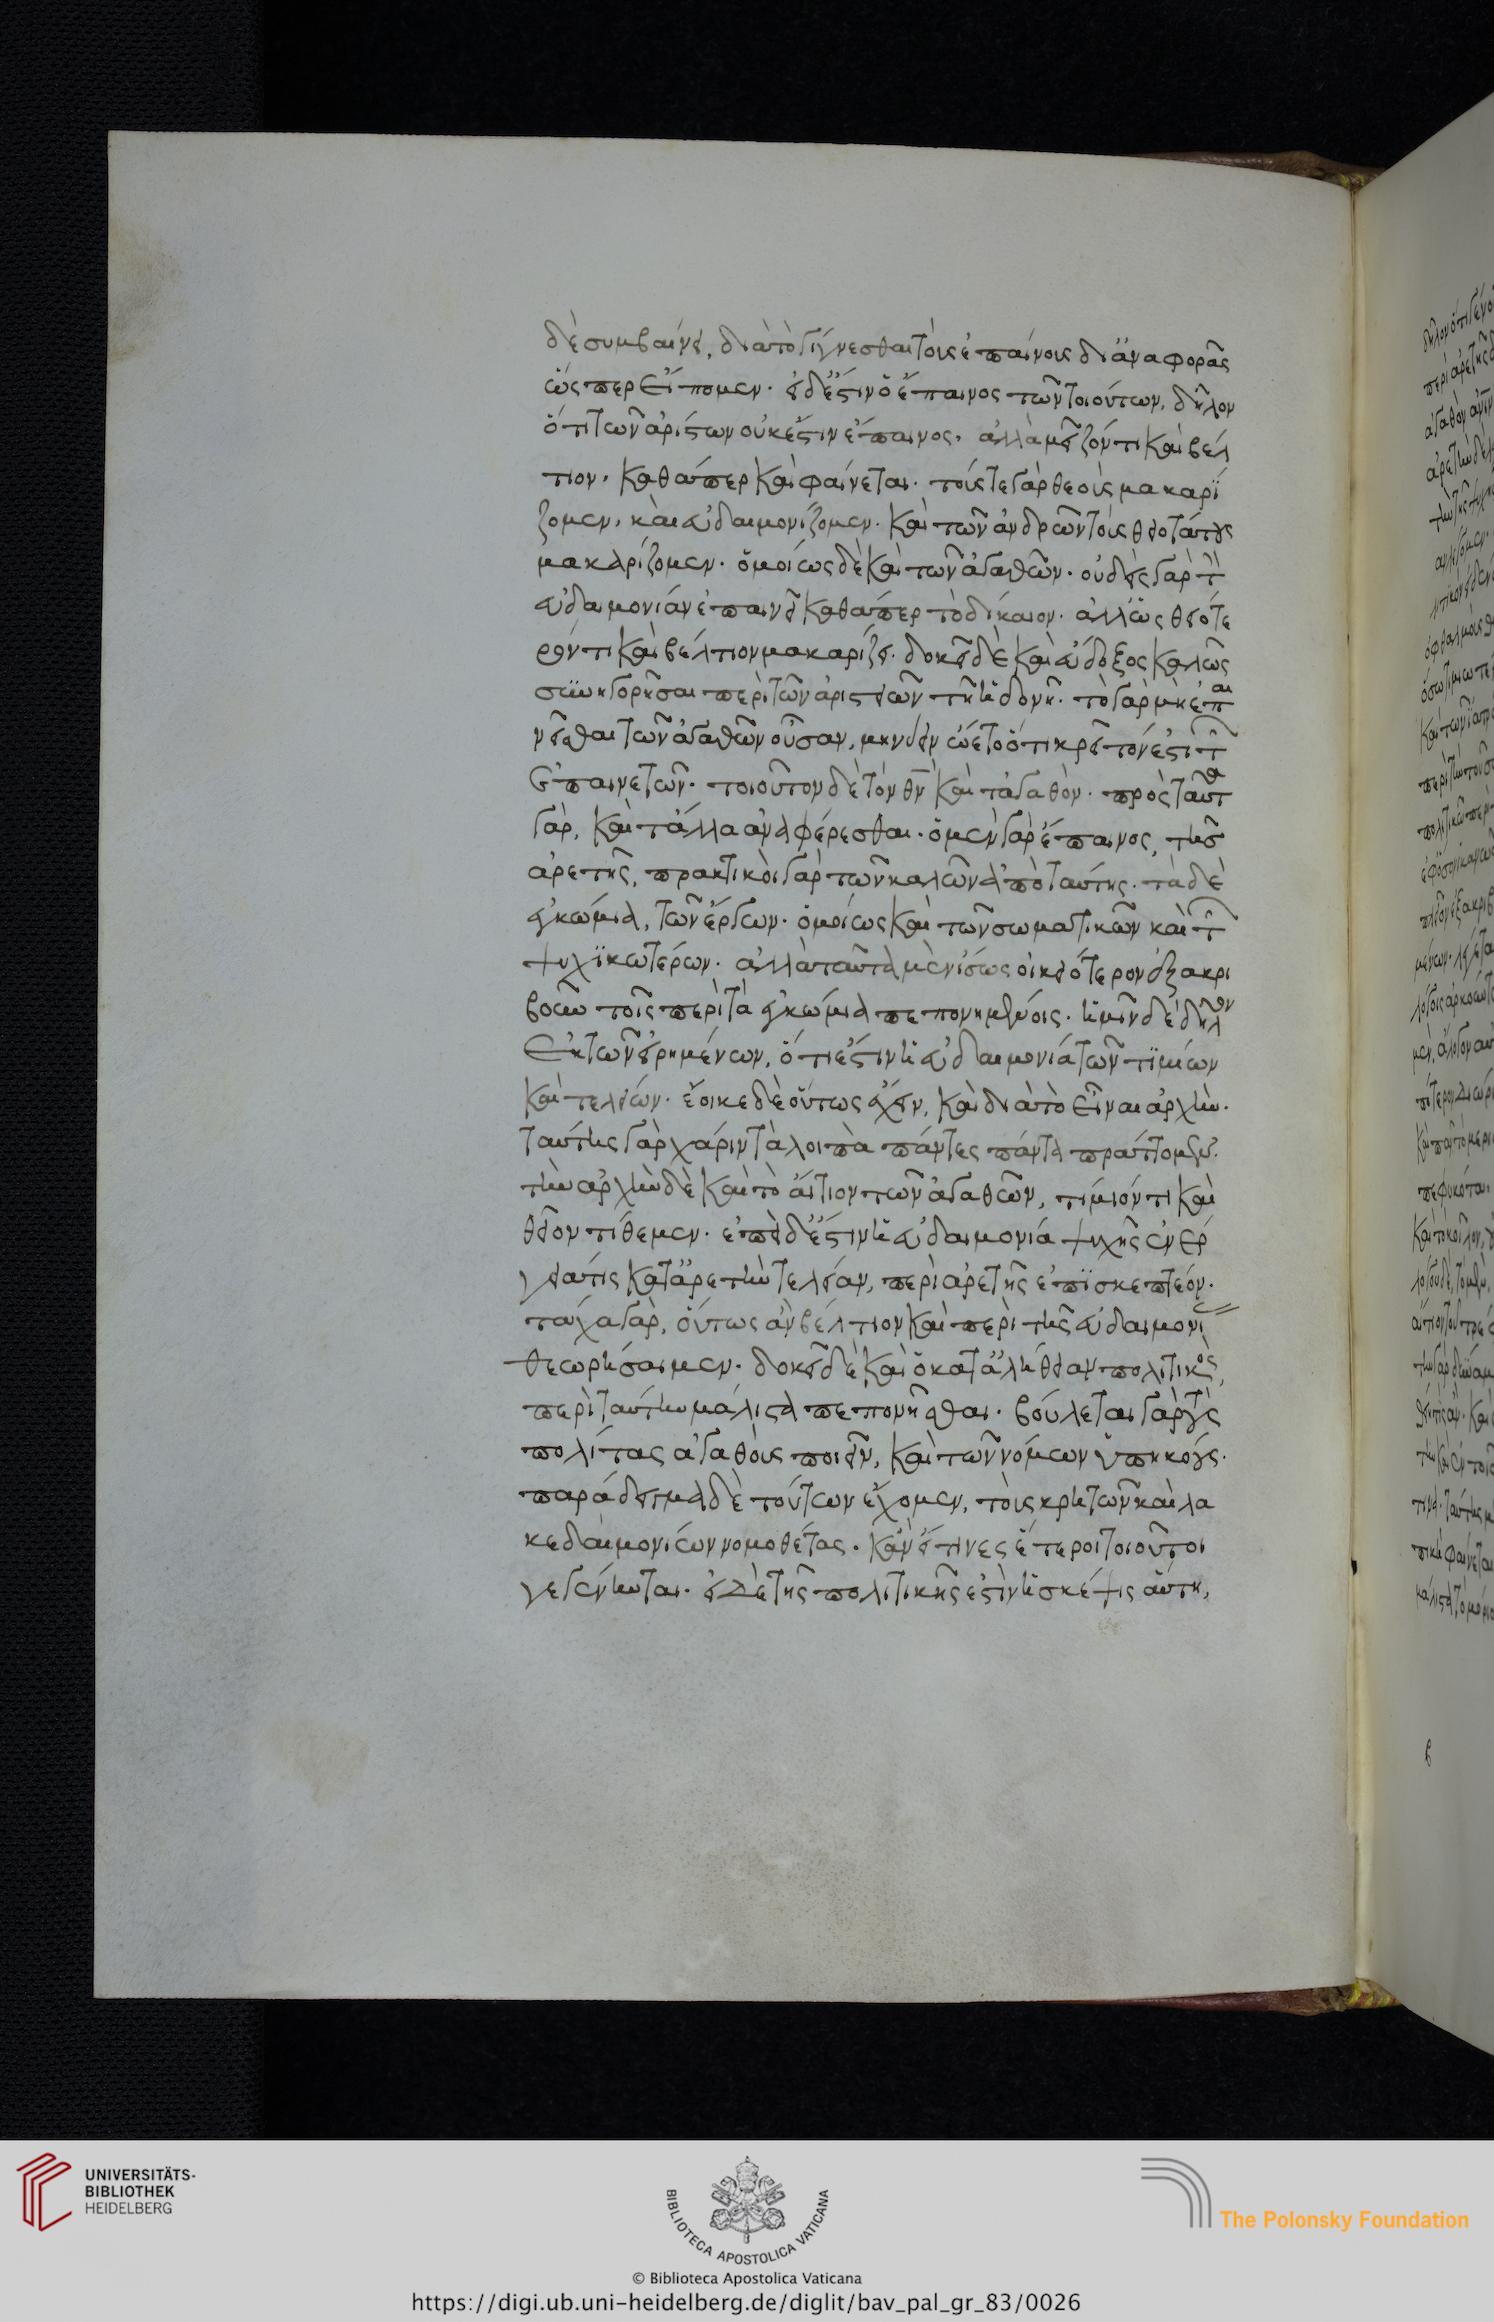 δὲ συμβαίνει, διὰ τὸ γίγνεσθαι τοὺς ἐπαίνους δι᾽ ἀναφορᾶς
ὥσπερ εἴπομεν. εἰ δ᾽ ἔστιν ὁ ἔπαινος τῶν τοιούτων, δῆλον
ὅτι τῶν ἀρίστων οὐκ ἔστιν ἔπαινος, ἀλλὰ μεῖζόν τι καὶ βέλ
τιον, καθάπερ καὶ φαίνεται. τούς τε γὰρ θεοὺς μακαρί
ζομεν, καὶ εὐδαιμονίζομεν. καὶ τῶν ἀνδρῶν τοὺς θειοτάτους
μακαρίζομεν. ὁμοίως δὲ καὶ τῶν ἀγαθῶν. οὐδεὶς γὰρ τὴν
εὐδαιμονίαν ἐπαινεῖ καθάπερ τὸ δίκαιον. ἀλλ᾽ ὡς θειότε
ρόν τι καὶ βέλτιον μακαρίζει. δοκεῖ δὲ καὶ εὔδοξος καλῶς
συνηγορῆσαι περὶ τῶν ἀριστείων τῇ ἡδονῇ. τὸ γὰρ μὴ ἐπαι
νεῖσθαι τῶν ἀγαθῶν οὖσαν, μηνύειν ᾤετο ὅτι κρεῖττόν ἐστι τῶν
ἐπαινετῶν. τοιοῦτον δὲ τὸν θν̄ καὶ τἀγαθόν. πρὸς ταῦτα
γὰρ, καὶ τἄλλα ἀναφέρεσθαι. ὁ μὲν γὰρ ἔπαινος, τῆς
ἀρετῆς, πρακτικοὶ γὰρ τῶν καλῶν ἀπὸ ταύτης. τὰ δὲ
ἐγκώμια, τῶν ἔργων. ὁμοίως καὶ τῶν σωματικῶν καὶ τῶν
ψυχικωτέρων. ἀλλὰ ταῦτα μὲν ἴσως οἰκειότερον ἐξακρι
βοῦν τοῖς περὶ τὰ ἐγκώμια πεπονημένοις. ἡμῖν δὲ δῆλον
ἐκ τῶν εἰρημένων, ὅτι ἐστὶν ἡ εὐδαιμονία τῶν τιμίων
καὶ τελείων. ἔοικε δὲ οὕτως ἔχειν, καὶ διὰ τὸ εἶναι ἀρχήν.
ταύτης γὰρ χάριν τὰ λοιπὰ πάντες πάντα πράττομεν.
τὴν ἀρχὴν δὲ καὶ τὸ αἴτιον τῶν ἀγαθῶν, τίμιόν τι καὶ
θεῖον τίθεμεν. ἐπεὶ δ᾽ ἔστιν ἡ εὐδαιμονία ψυχῆς ἐνέρ
γειά τις κατ᾽ ἀρετὴν τελείαν, περὶ ἀρετῆς ἐπισκεπτέον.
τάχα γὰρ, οὕτως ἂν βέλτιον καὶ περὶ τῆς εὐδαιμονίας
θεωρήσαιμεν. δοκεῖ δὲ καὶ ὁ κατ᾽ ἀλήθειαν πολιτικὸς,
περὶ ταύτην μάλιστα πεπονῆσθαι. βούλεται γὰρ τοὺς
πολίτας ἀγαθοὺς ποιεῖν, καὶ τῶν νόμων ὑπηκόους.
παράδειγμα δὲ τούτων ἔχομεν, τοὺς κρητῶν καὶ λα
κεδαιμονίων νομοθέτας. κἂν εἴ τινες ἕτεροι τοιοῦτοι
γεγένηνται. εἰ δὲ τῆς πολιτικῆς ἐστὶν ἡ σκέψις αὕτη,
β
UNIVERSITÄTS-
BIBLIOTHEK
HEIDELBERG
BIBLIOTECA APOSTOLICA VATICANA
The Polonsky Foundation
© Biblioteca Apostolica Vaticana
https://digi.ub.uni-heidelberg.de/diglit/bav_pal_gr_83/0026